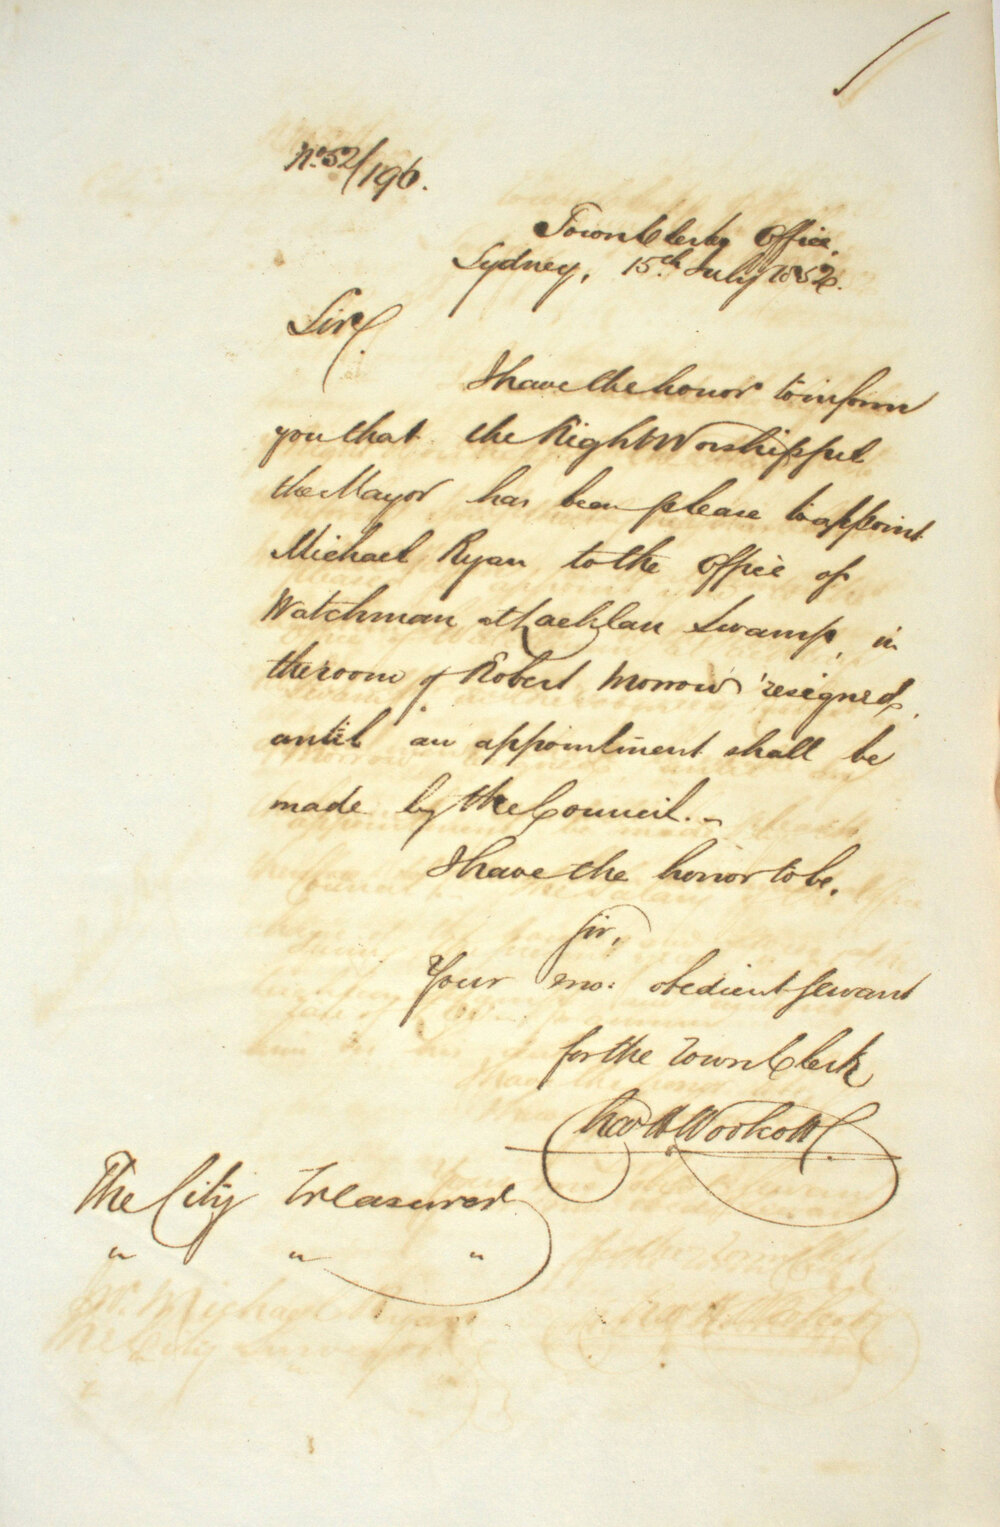 No. 52/196.
Town Clerks Office.
Sydney, 15th July 1852.
Sir,
I have the honor to inform
you that the Right Worshipful
the Mayor has been please to appoint
Michael Ryan to the Office of
Watchman at Lachlan Swamp, in
the room of Robert Morrow resigned,
until an appointment shall be
made by the Council.
I have the honor to be.
Sir,
Your mo: obedient Servant
for the Town Clerk
Chas H Woolcott.
The City Treasurer
" " "
Mr. Michael Ryan
The City Surveyor